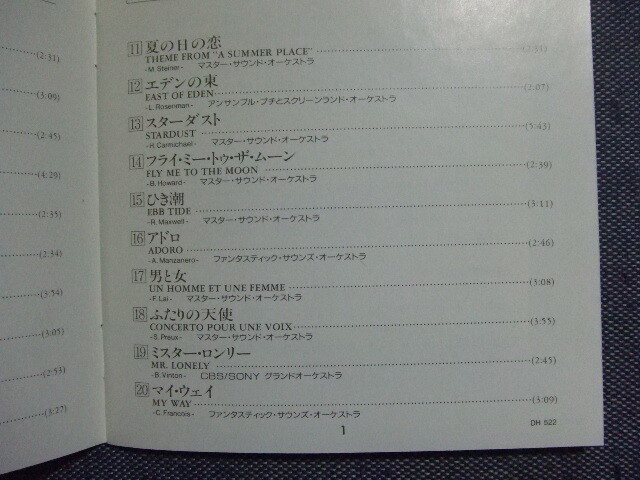 (2:31)
(3:09)
(2:45)
(4:29)
(2:35)
(2:34)
(3:54)
(3:05)
(2:53)
(3:27)
11 夏の日の恋
THEME FROM "A SUMMER PLACE"
-M. Steiner- マスター・サウンド・オーケストラ
12 エデンの東
EAST OF EDEN (2:07)
-L. Rosenman- アンサンブル・プチとスクリーンランド・オーケストラ
13 スターダスト
STARDUST (5:43)
-H. Carmichael- マスター・サウンド・オーケストラ
14 フライ・ミー・トゥ・ザ・ムーン
FLY ME TO THE MOON (2:39)
-B. Howard- マスター・サウンド・オーケストラ
15 ひき潮
EBB TIDE (3:11)
-R. Maxwell- マスター・サウンド・オーケストラ
16 アドロ
ADORO (2:46)
-A. Manzanero- ファンタスティック・サウンズ・オーケストラ
17 男と女
UN HOMME ET UNE FEMME (3:08)
-F. Lai- マスター・サウンド・オーケストラ
18 ふたりの天使
CONCERTO POUR UNE VOIX (3:55)
-S. Preux- マスター・サウンド・オーケストラ
19 ミスター・ロンリー
MR. LONELY (2:45)
-B. Vinton- CBS/SONY グランドオーケストラ
20 マイ・ウェイ
MY WAY (3:09)
-C. Francois- ファンタスティック・サウンズ・オーケストラ
1
DH 522